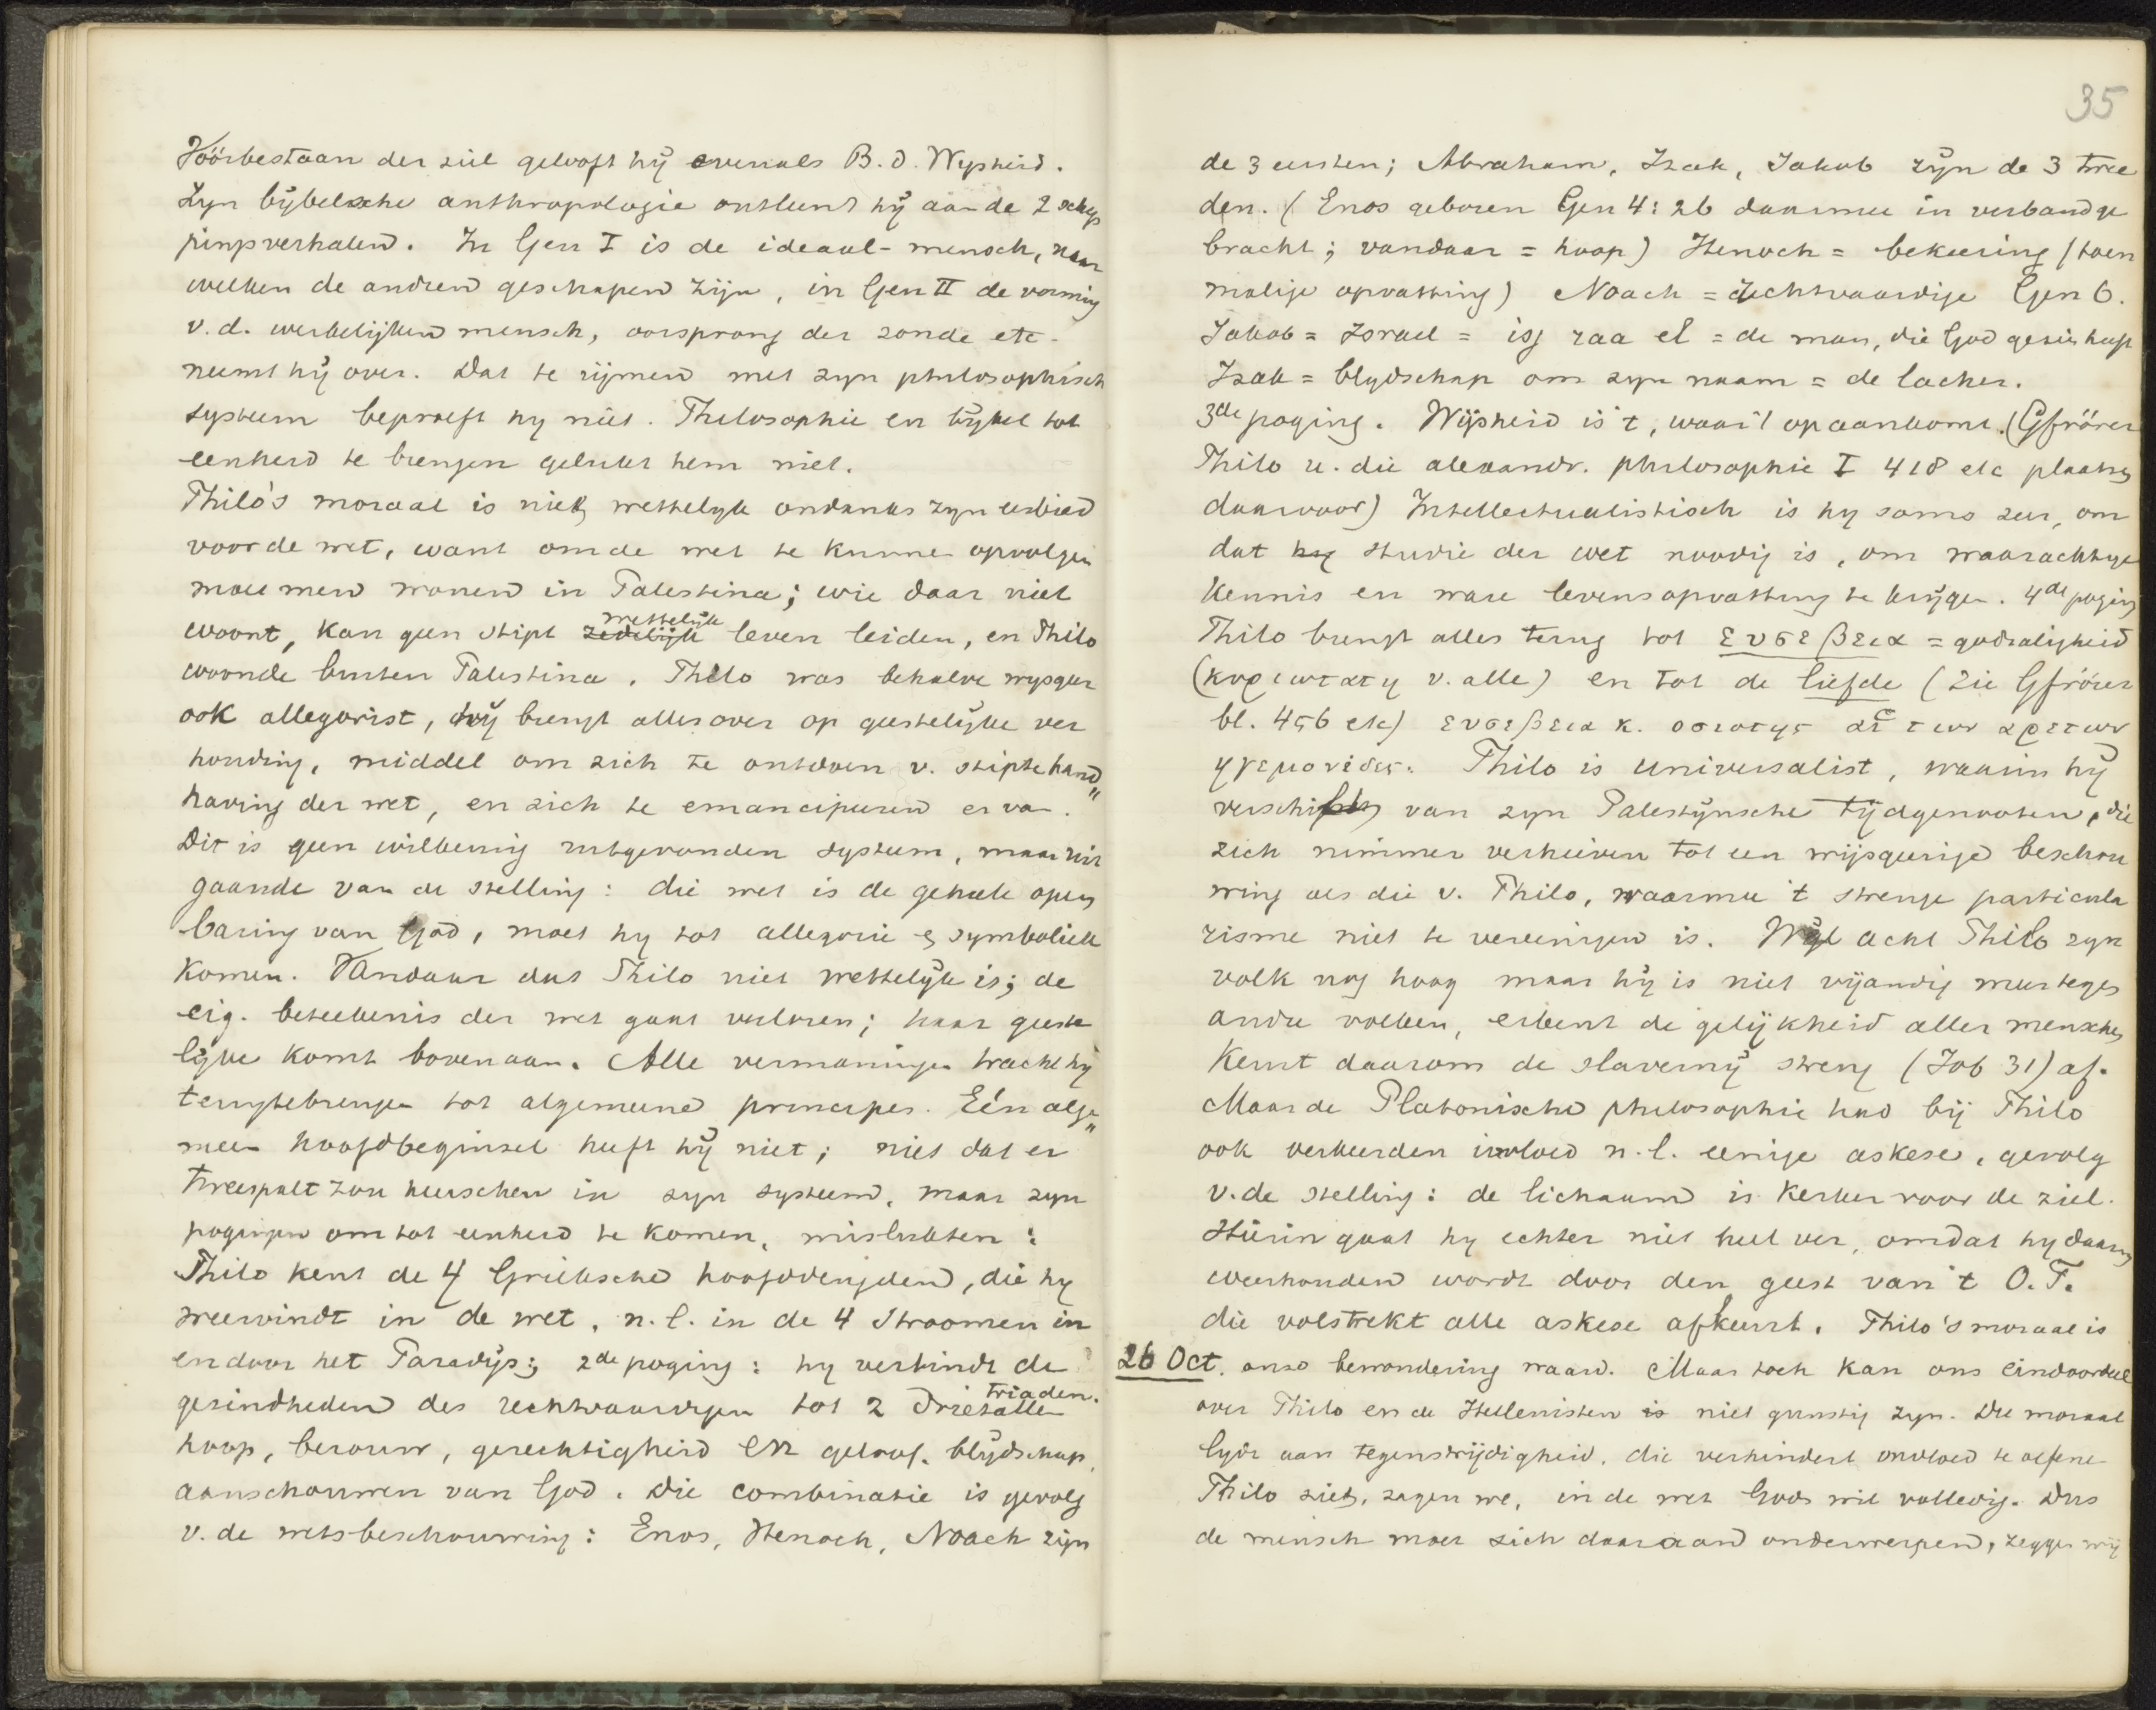 Vóórbestaan der ziel gelooft hij evenals B. d. Wysheid.
Zyn bijbelsche anthropologie ontleent hij aan de 2 schep
pingsverhalen. In Gen I is de ideaal-mensch, naar
welken de andren geschapen zijn, in Gen II de vorming
v.d. werkelijken mensch, oorsprong der zonde etc.
neemt hij over. Dat te rijmen met zyn philosophisch
systeem beproeft hy niet. Philosophie en bijbel tot
eenheid te brengen gelukt hem niet.
Philo's moraal is niet wettelyk ondanks zyn eerbied
voor de wet, want om de wet te kunnen opvolgen
moet men wonen in Palestina; wie daar niet
wettelijk
woont, kan geen stipt zedelijk leven leiden, en Philo
woonde buiten Palestina. Philo was behalve wysgeer
ook allegorist, hij brengt alles over op geestelijke ver
houding, middel om zich te ontdoen v. stipte hand„
having der wet, en zich te emancipeeren er van.
Dit is geen willekeurig uitgevonden systeem, maar uit
gaande van de stelling: die wet is de geheele open
baring van God, moet hy tot allegorie en symboliek
komen. Vandaar dat Philo niet wettelijk is; de
eig. beteekenis der wet gaat verloren; haar geeste
lijke komt bovenaan. Alle vermaningen tracht hij
terugtebrengen tot algemeene principes. Eén alge„
meen hoofdbeginsel heeft hij niet; niet dat er
tweespalt zou heerschen in zyn systeem, maar zyn
pogingen om tot eenheid te komen, mislukten:
Philo kent de 4 Grieksche hoofddeugden, die hy
weervindt in de wet, n.l. in de 4 stroomen in
en door het Paradijs; 2de poging: hy verbindt de
triaden.
gezindheden des rechtvaardigen tot 2 drietallen
hoop, berouw, gerechtigheid en geloof, blijdschap,
aanschouwen van God. Die combinatie is gevolg
v. de wetsbeschouwing: Enos, Henoch, Noach zijn
35
de 3 eersten; Abraham, Izak, Jakob zijn de 3 twee
den. (Enos geboren Gen 4:26 daarmee in verband ge
bracht; vandaar = hoop) Henoch = bekeering (toen
malige opvatting) Noach = rechtvaardige Gen 6.
Jakob = Israel = isj raa el = de man, die God gezien heeft
Izak = blydschap om zyn naam = de lacher.
3de poging. Wijsheid is 't, waar 't op aankomt. (Gfrörer
Philo u. die alexandr. philosophie I 418 etc plaatsen
daarvoor) Intellectualistisch is hy soms zeer, om
dat hy studie der wet noodig is, om waarachtige
kennis en ware levensopvatting te krijgen. 4de poging
Philo brengt alles terug tot ευσεβεια = godzaligheid
(κυριωτατη v. alle) en tot de liefde (zie Gfrörer
bl. 456 etc) ευσεβεια κ. οσιοτης αἱ των αρετων
ηγεμονιδες. Philo is universalist, waarin hij
verschilt van zyn Palestijnsche tijdgenooten, die
zich nimmer verhieven tot een wijsgeerige beschou
wing als die v. Philo, waarmee 't strenge particula
risme niet te vereenigen is. Wel acht Philo zyn
volk nog hoog maar hij is niet vijandig meer tegen
andre volken, erkent de gelijkheid aller menschen
Keurt daarom de slavernij streng (Job 31) af.
Maar de Platonische philosophie had bij Philo
ook verkeerden invloed n.l. eenige askese, gevolg
v. de stelling: de lichaam is kerker voor de ziel.
Hierin gaat hy echter niet heel ver, omdat hy daarin
weerhouden wordt door den geest van 't O.T.
die volstrekt alle askese afkeurt. Philo's moraal is
26 Oct. onze bewondering waard. Maar toch kan ons eindoordeel
over Philo en de Hellenisten is niet gunstig zyn. Die moraal
lijdt aan tegenstrijdigheid, die verhindert invloed te oefenen
Philo ziet, zagen we, in de wet Gods wil volledig. Dus
de mensch moet zich daaraan onderwerpen, zeggen wij